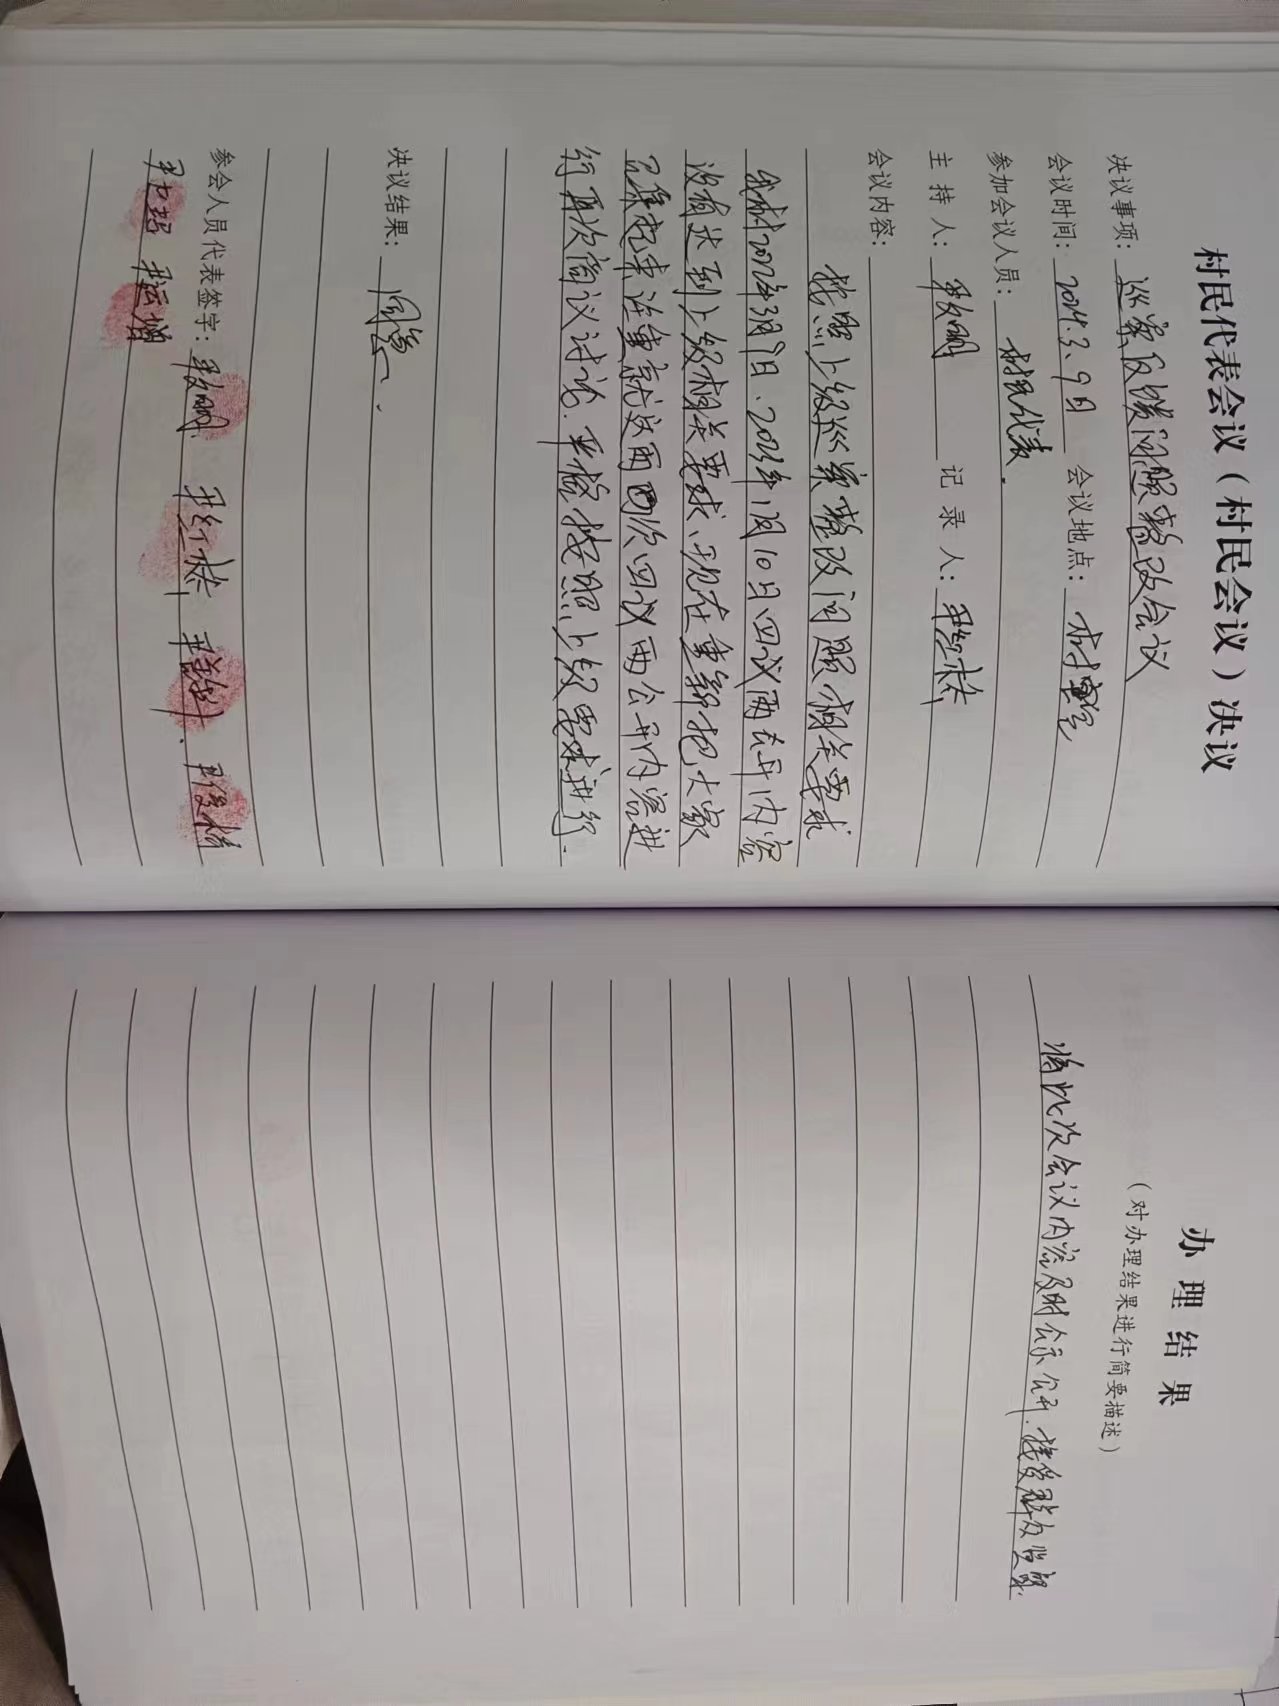 村民代表会议（村民会议）决议
决议事项：巡察反馈问题整改会议
会议时间：2024.3.9日 会议地点：村室
参加会议人员：村民代表.
主持人： 记录人：
会议内容：
按照上级巡察整改问题相关要求
我村202年3月9日、202年1月10日四议两公开内容
没有达到上级相关要求、现在重新把大家
召集起来注重就这两次四议两公开内容进
行再次商议讨论.严格按照上级要求进行.
决议结果：同意.
参会人员代表签字：
办理结果
（对办理结果进行简要描述）
将此次会议内容及时公示公开.接受群众监督.